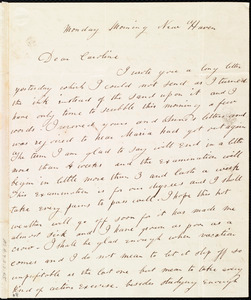 Monday Morning New Haven
Dear Caroline
I wrote you a long letter
yesterday which I could not send as I turned
the ink instead of the sand upon it and I
have only time to scribble this morning a few
words. I received yours and letter and
was rejoiced to hear Maria had got out again
The term I am glad to say will end in a little
more than 4 weeks and the examination will
begin in little more than 2 and lasts a week
This examination is for our degrees and I shall
take every pains to pass well. I hope this hot
weather will go off soon for it has made me
almost sick and I have grown as poor as a
crow. I shall be glad enough when vacation
comes and I do not mean to let it slip off so
unprofitable as the last one but mean to take every
kind of active exercise. besides studying enough